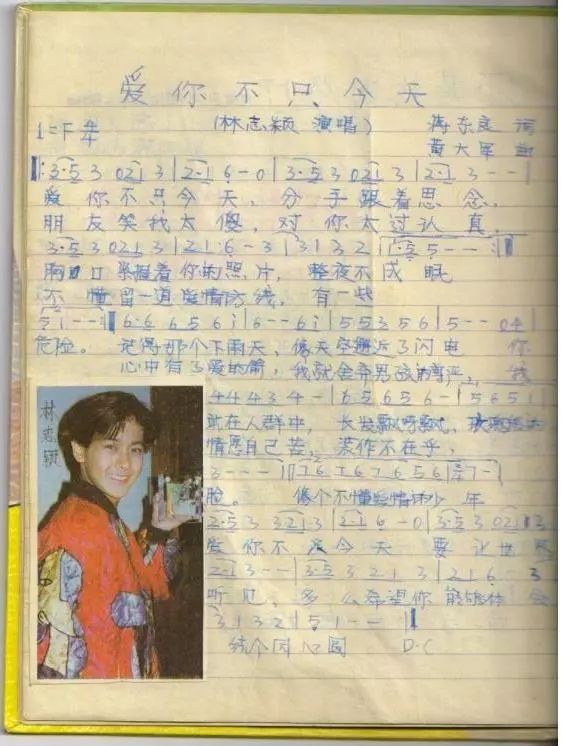 爱你不只今天
1=F 4/4 (林志颖 演唱) 蒋东良 词
黄大军 曲
‖: 3·5 3 021 3 | 2·1 6 - 0 | 3·5 3 021 3 | 2·1 3 - - |
爱你不只今天,分手跟着思念,
朋友笑我太傻,对你太过认真,
3·5 3 021 3 | 21:6 - 3 | 3 1 3 2 | 1·5 5 - - :‖
胸口紧握着你的照片,整夜不成眠
不懂留一道爱情防线,有一些
1 - - ‖ 6·6 6 5 6 i | 6 - - 6i | 5 5 3 5 6 | 5 - -
危险。记得那个下雨天,像天空邂逅了闪电 你
心中有了爱的箭,我就舍弃男孩的尊严,我
4 4 4 3 4 - | 6·5 6 5 6 - | 5 6 5 1
站在人群中,长发飘呀飘
情愿自己苦,装作不在乎,
林志颖
3 - - - | 7 6 7 6 7 6 5 6
脸。像个不懂爱情的少年
2·5 3 321 3 | 2·1 6 - 0 | 3·5 3 021 3
爱你不只今天 要让世界
2·1 3 - - | 3·5 3 2 1 3 | 2 1 6 3
听见,多么希望你能够体会
3 1 3 2 | 5 1 - - ‖
D.C